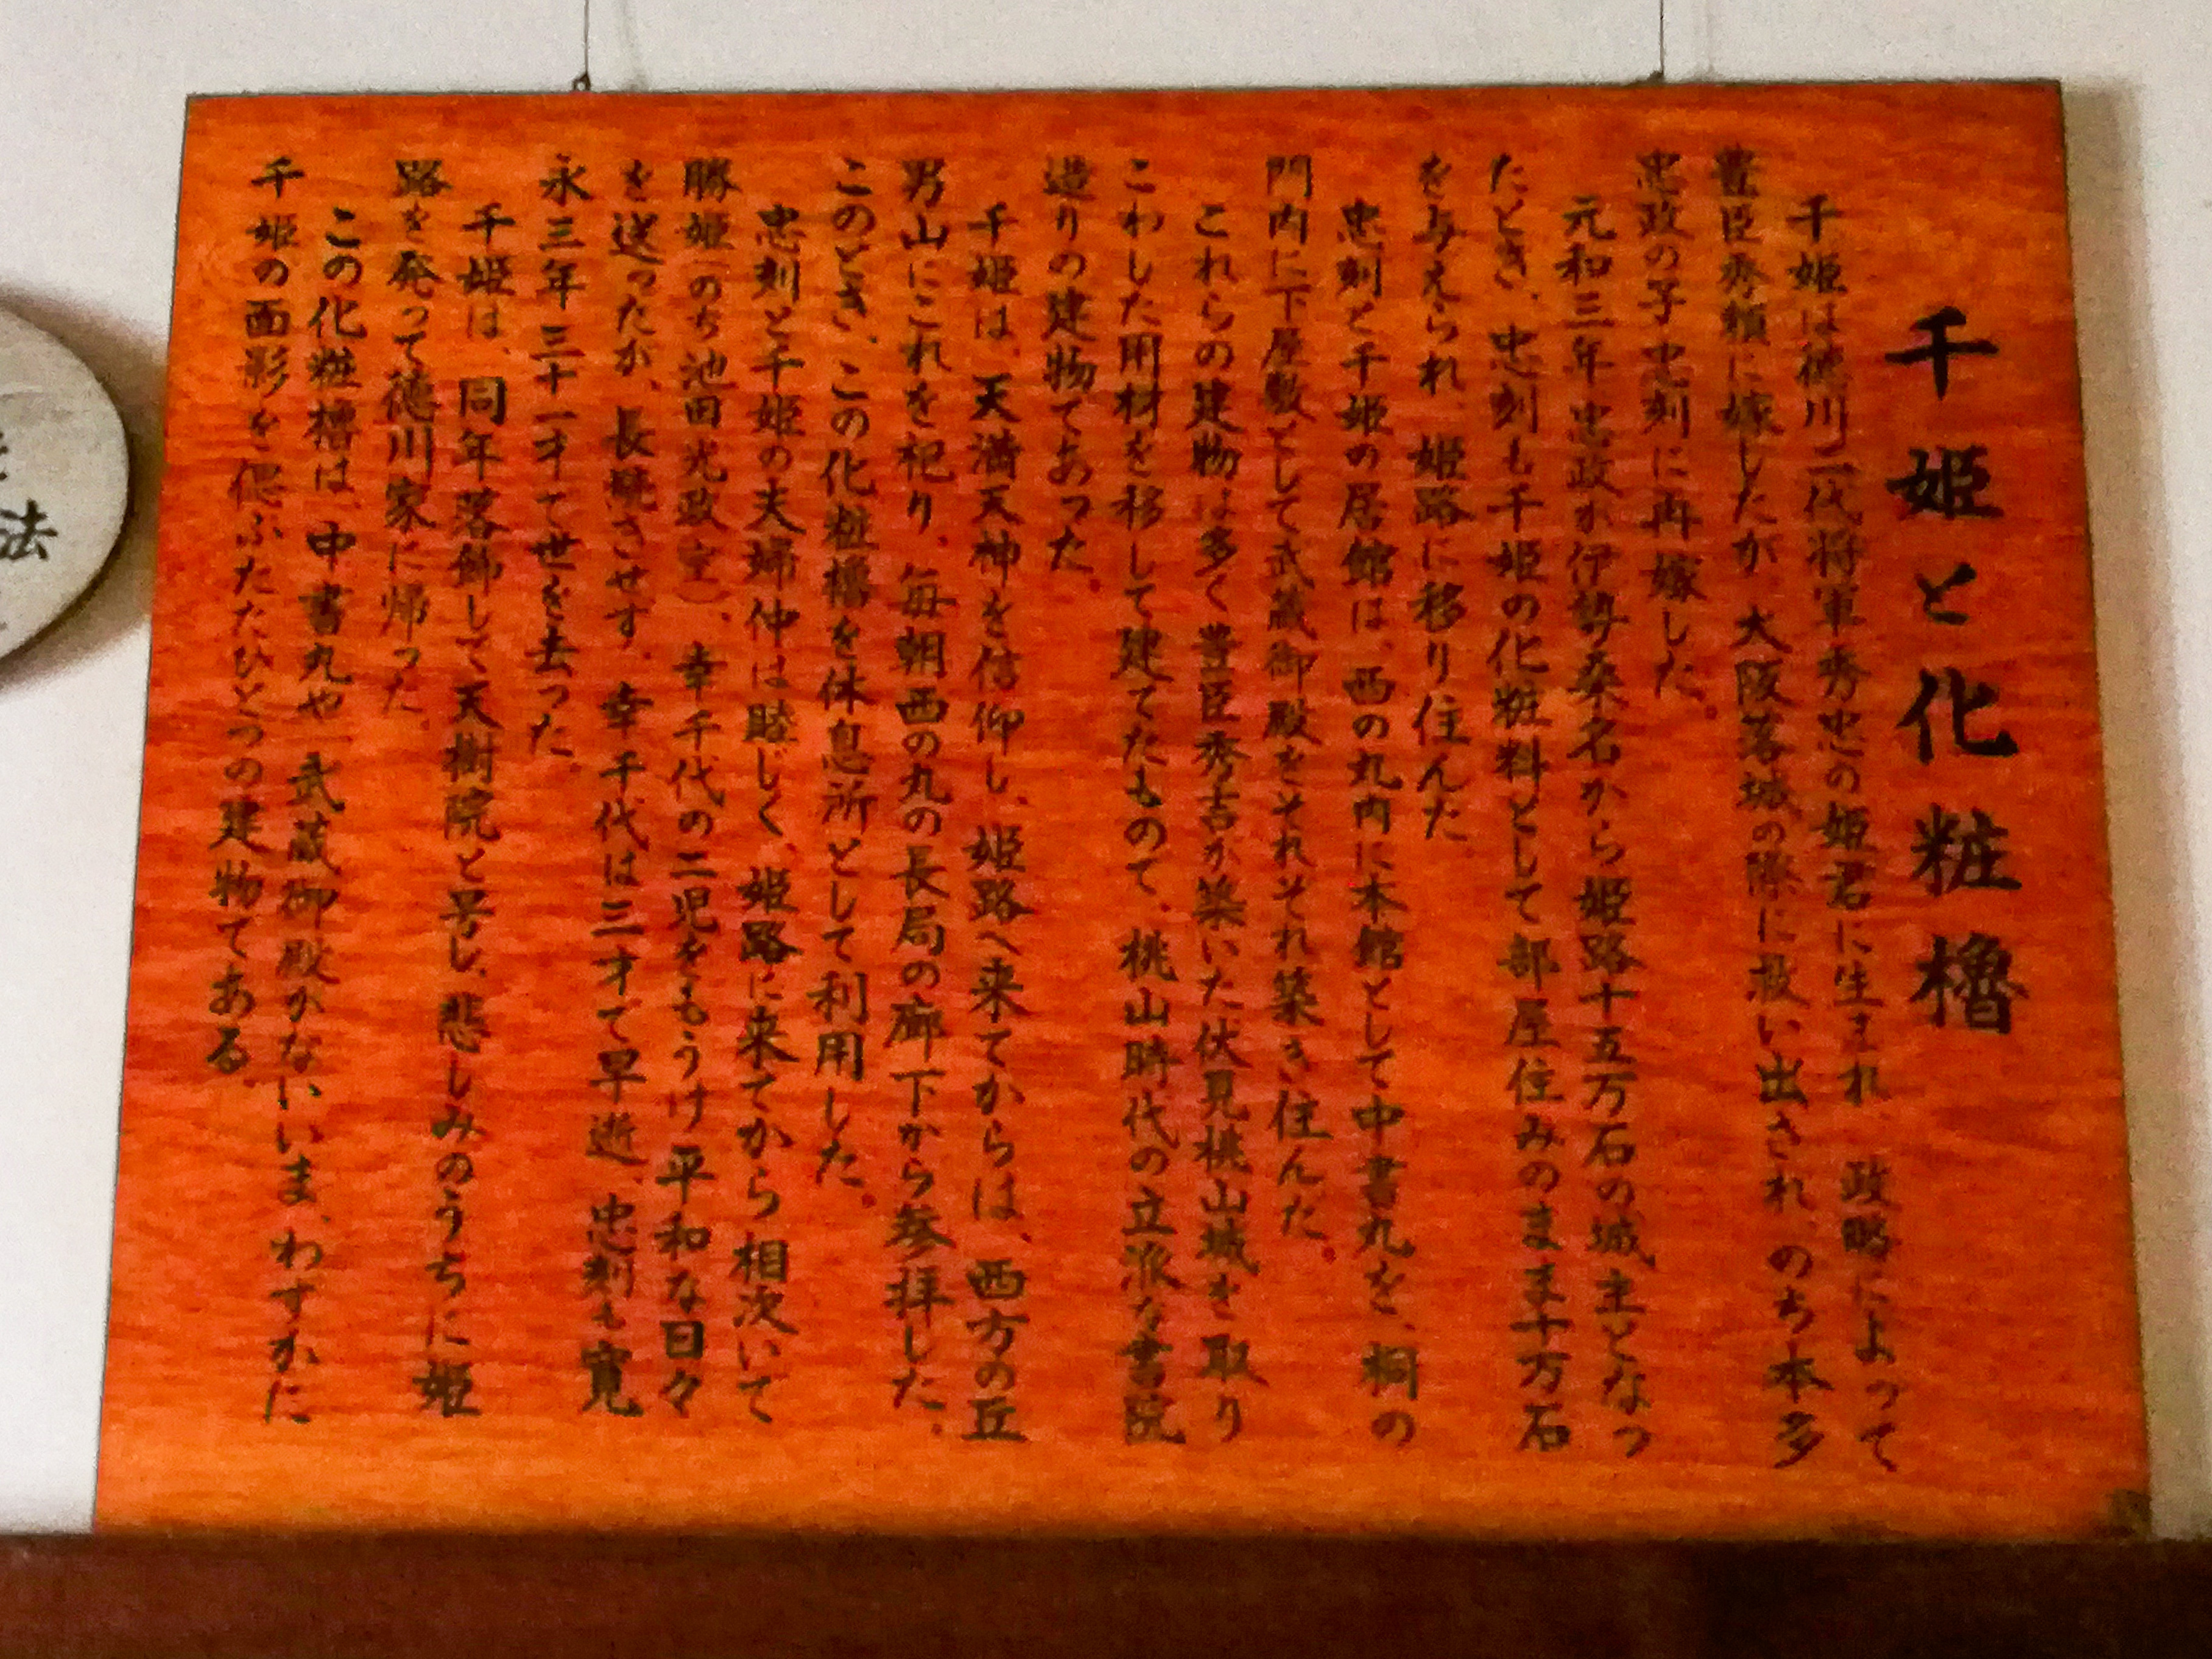 千姫と化粧櫓
千姫は徳川二代将軍秀忠の姫君に生まれ 政略によって
豊臣秀頼に嫁したが 大阪落城の際に救い出され、のち本多
忠政の子忠刻に再嫁した。
元和三年忠政が伊勢桑名から姫路十五万石の城主となっ
たとき、忠刻も千姫の化粧料として部屋住みのまま十万石
を与えられ、姫路に移り住んた
忠刻と千姫の居館は、西の丸内に本館として中書丸を、桐の
門内に下屋敷として武蔵御殿をそれそれ築き住んた。
これらの建物は多く豊臣秀吉が築いた伏見桃山城を取り
こわした用材を移して建てたものて、桃山時代の立派な書院
造りの建物てあった。
千姫は、天満天神を信仰し、姫路へ来てからは、西方の丘
男山にこれを祀り、毎朝西の丸の長局の廊下から参拝した。
このとき、この化粧櫓を休息所として利用した。
忠刻と千姫の夫婦仲は睦じく、姫路に来てから相次いて
勝姫(のち池田光政室)、幸千代の二児をもうけ平和な日々
を送ったが、長続きせす、幸千代は三才て早逝、忠刻も寛
永三年三十一才て世を去った。
千姫は、同年落飾して天樹院と号し、悲しみのうちに姫
路を発って徳川家に帰った。
この化粧櫓は、中書丸や武蔵御殿かないいま、わすかに
千姫の面影を偲ふたたひとつの建物てある。
法